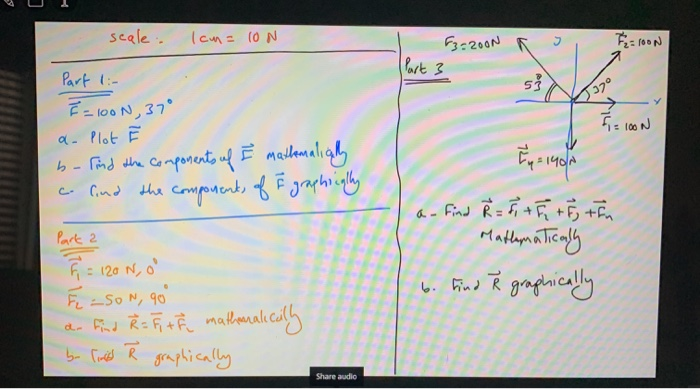 scale: 1cm = 10 N
Part 1:-
F = 100 N, 37°
a- Plot F
b- Find the components of F mathematically
c- Find the components of F graphically
Part 2
F₁ = 120 N, 0°
F₂ = 50 N, 90°
a- Find R = F₁ + F₂ mathematically
b- Find R graphically
Part 3
F₃=200N
F₂=100N
53°
37°
x
F₁ = 100 N
F₄ = 140N
a- Find R = F₁ + F₂ + F₃ + F₄
Mathematically
b. Find R graphically
Share audio